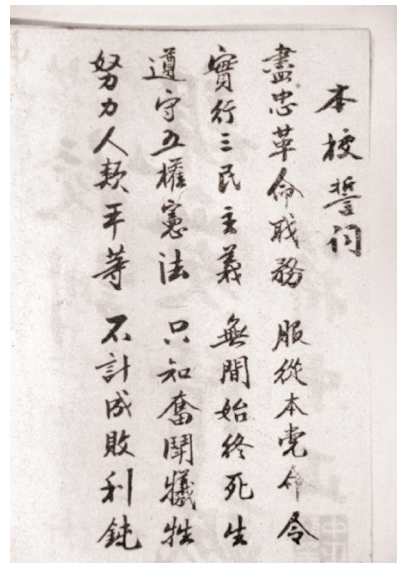 本校誓詞
盡忠革命職務 服從本党命令
實行三民主義 無間始終死生
遵守五權憲法 只知奮鬪犧牲
努力人類平等 不計成敗利鈍